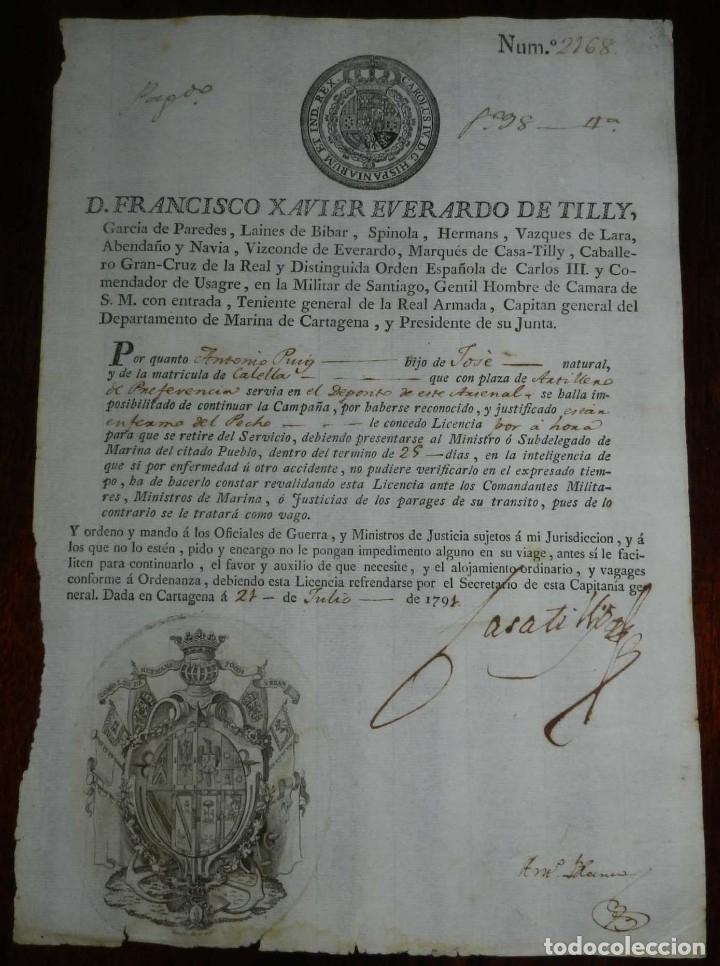 Num.º 2168.
Pagdo.
CAROLUS IV. D. G. HISPANIARUM ET IND. REX.
D. FRANCISCO XAVIER EVERARDO DE TILLY,
Garcia de Paredes, Laines de Bibar, Spinola, Hermans, Vazques de Lara,
Abendaño y Navia, Vizconde de Everardo, Marqués de Casa-Tilly, Caballe-
ro Gran-Cruz de la Real y Distinguida Orden Española de Carlos III. y Co-
mendador de Usagre, en la Militar de Santiago, Gentil Hombre de Camara de
S. M. con entrada, Teniente general de la Real Armada, Capitan general del
Departamento de Marina de Cartagena, y Presidente de su Junta.
Por quanto Antonio Puig hijo de Josè natural,
y de la matricula de Calella que con plaza de Artillero
de Preferencia servia en el Deposito de este Arsenal se halla im-
posibilitado de continuar la Campaña, por haberse reconocido, y justificado estar
enfermo del Pecho le concedo Licencia por àhora
para que se retire del Servicio, debiendo presentarse al Ministro ó Subdelegado de
Marina del citado Pueblo, dentro del termino de 25 dias, en la inteligencia de
que si por enfermedad ú otro accidente, no pudiere verificarlo en el expresado tiem-
po, ha de hacerlo constar revalidando esta Licencia ante los Comandantes Milita-
res, Ministros de Marina, ó Justicias de los parages de su transito, pues de lo
contrario se le tratará como vago.
Y ordeno y mando á los Oficiales de Guerra, y Ministros de Justicia sujetos á mi Jurisdiccion, y á
los que no lo estén, pido y encargo no le pongan impedimento alguno en su viage, antes sí le faci-
liten para continuarlo, el favor y auxilio de que necesite, y el alojamiento ordinario, y vagages
conforme á Ordenanza, debiendo esta Licencia refrendarse por el Secretario de esta Capitanía ge-
neral. Dada en Cartagena á 21 de Julio de 1791.
Casatilly
todocoleccion